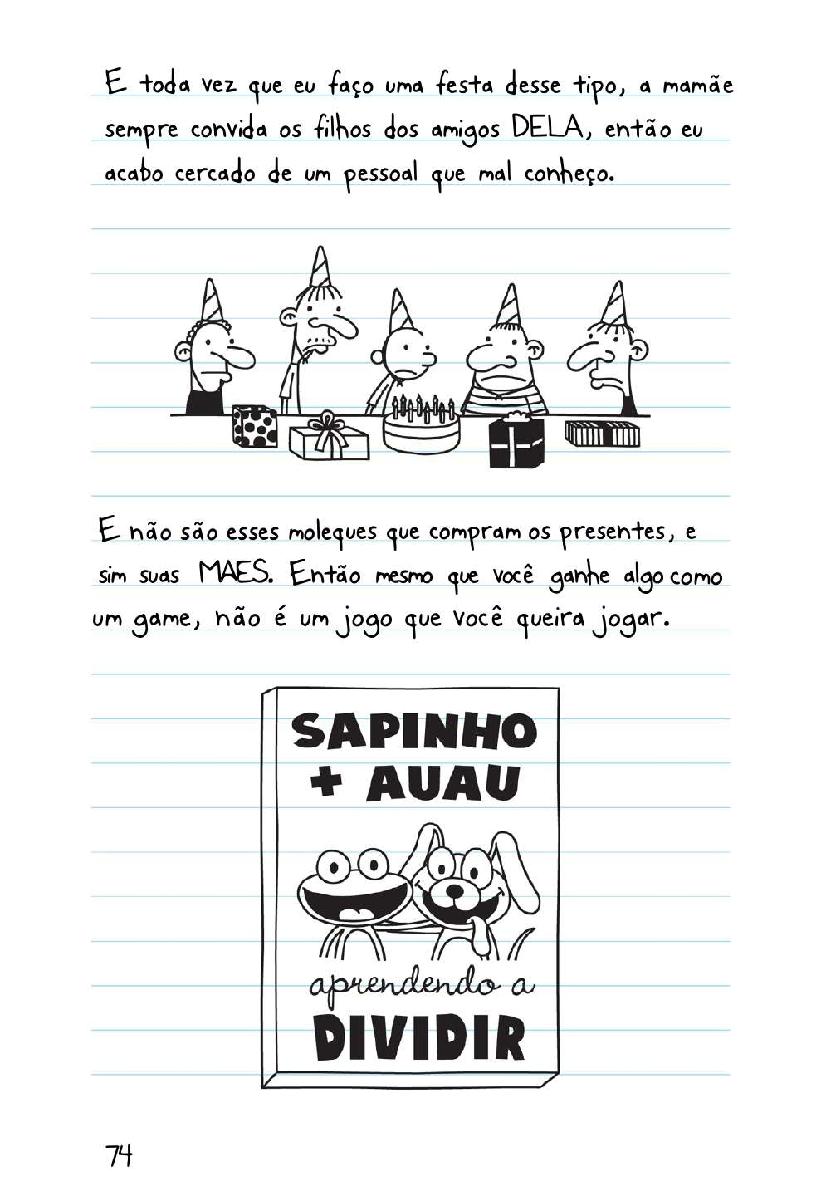 E toda vez que eu faço uma festa desse tipo, a mamãe
sempre convida os filhos dos amigos DELA, então eu
acabo cercado de um pessoal que mal conheço.
E não são esses moleques que compram os presentes, e
sim suas MAES. Então mesmo que você ganhe algo como
um game, não é um jogo que você queira jogar.
SAPINHO
+ AUAU
aprendendo a
DIVIDIR
74